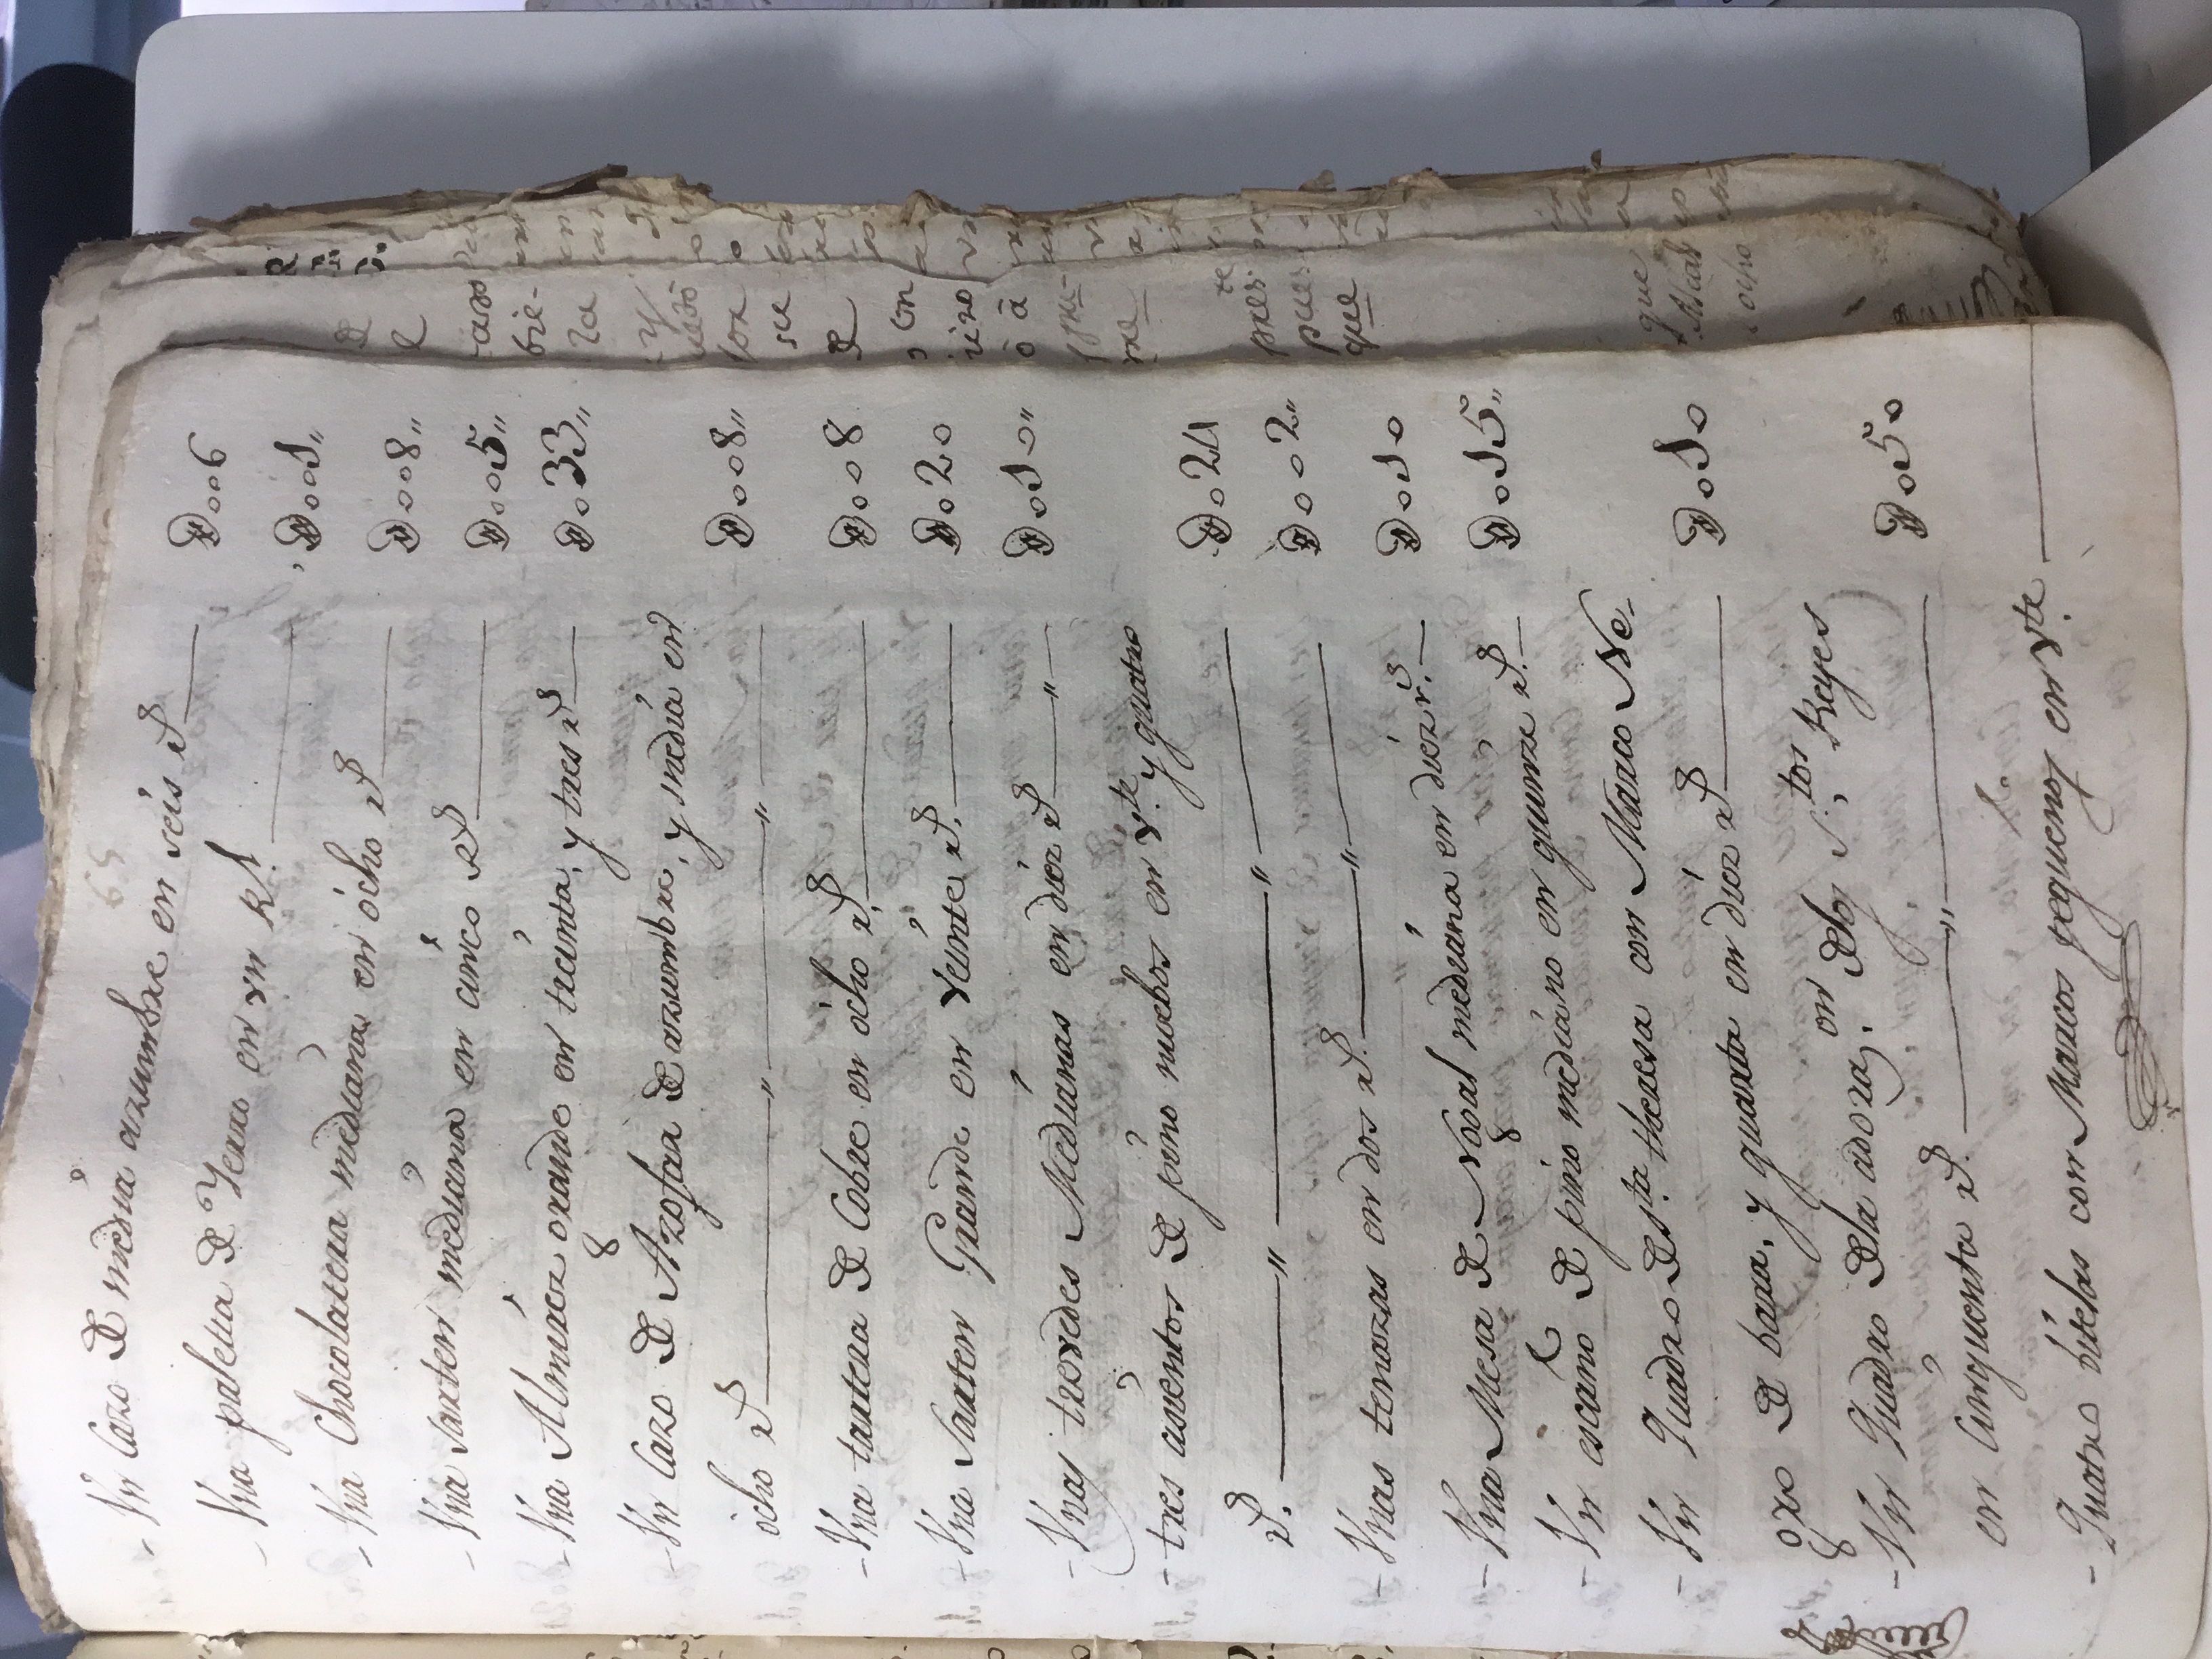 65
- Vn Cazo de média azumbre en séis rs D006
- Vna paletta de Yerro en vn Rl. D001"
- Vna Chocolatera mediana en ócho rs D008"
- Vna sarten mediána en cinco rs D005"
- Vna Almirez grande en treinta, y tres rs D033"
- Vn Cazo de Azofar de azumbre, y média en
ócho rs " " D008"
- Vna tartera de Cobre en ócho rs D008
- Vna Sarten Grande en Veinte rs D020
- Vnas trevedes Medianas en diez rs " D010"
- tres asientos de pino nuebos en Vte. y quatro
rs. " " D024
- Vnas tenazas en dos rs. " D002"
- Vna Mesa de Nogal mediána en diez rs. D010
- Vn escaño de pino mediano en quinze rs. D015"
- Vn Quadro de Sta. theresa con Marco Ne-
gro de bara, y quarta en diez rs D010
- Vn Quadro de la adorazon. de los Stos. Reyes
en Cinquenta rs. " D050
- Quatro bitelas con Marcos pequenos en Vte.